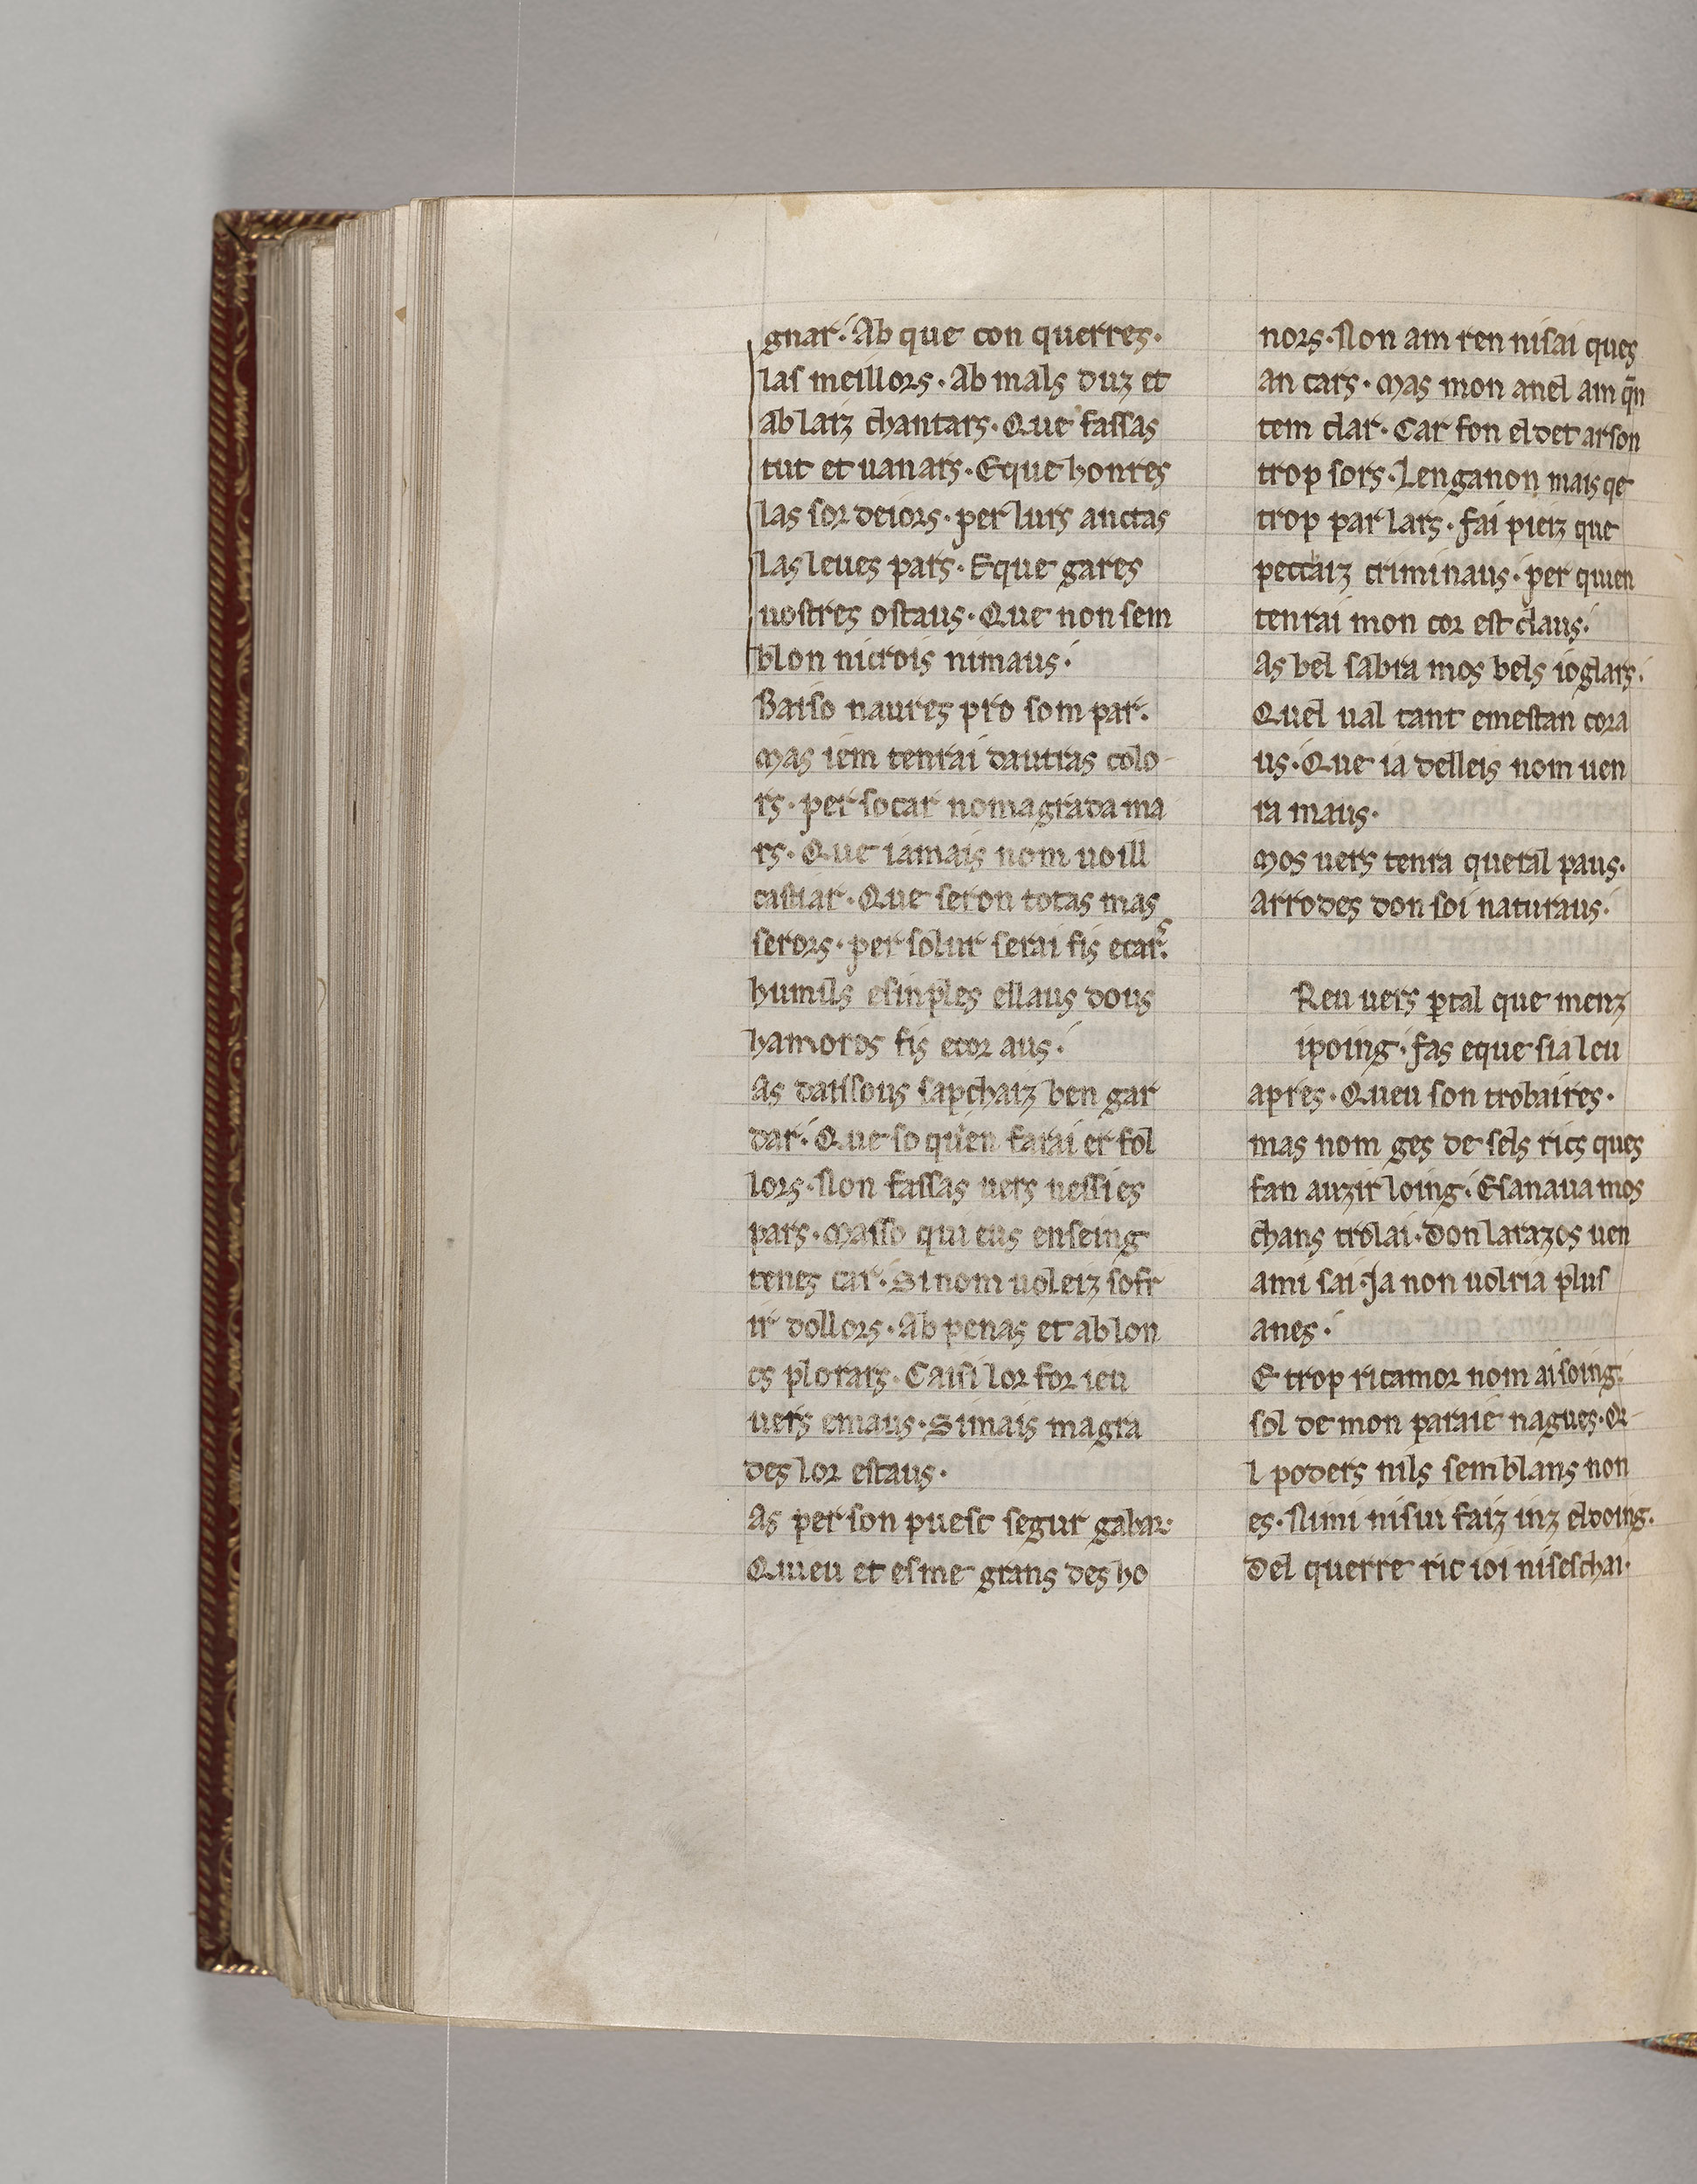 gnar. Ab que con querres.
las meillors. Ab mals duz et
ab laiz chantars. Que fassas
tut et uanars. Eque honres
las sordeiors. per lurs anctas
las leues pars. Eque gares
uostres ostaus. Que non sem
blon nicrois nimaus.
Baiso naures pro som par.
Mas iem tenrai dautras colo
rs. per socar nomagrada ma
rs. Que iamais nom uoill
castiar. Que seron totas mas
serors. per solur serai fis ecars.
humils esinples ellaus dous
hamoros fis ecor aus.
As daissous sapchaiz ben gar
dar. Que so quen farai er fol
lors. Non fassas uers uessi es
pars. Maisso qui eus enseing
tenes car. Si nom uoleiz sofr
ir dollors. Ab penas et ab lon
cs plorars. Caisi lor for ieu
uers emaus. Simais magra
des lor estaus.
As per son puesc segur gabar.
Queu et esme grans des ho
nors. Non am ren nisai ques
an cars. Mas mon anel am qn̄
tem clar. Car fon el det ar son
trop sors. Lenganon mais qe
trop par lars. fai pieiz que
pecchaiz criminaus. per quien
tenrai mon cor est claus.
As bel sabra mos bels ioglars.
Quel ual tant emestan cora
us. Que ia delleis nom uen
ra maus.
Mos uers tenra queral paus.
Arrodes don soi naturaus.
Reu uers p̱tal que menz
ipoing. fas eque sia leu
apres. Queu son trobaires.
mas nom ges de sels rics ques
fan auzir loing. Esanaua mos
chans trolai. Don larazos uen
ami sai. Ja non uolria plus
anes.
E trop ricamor nom ai soing.
sol de mon paraie nagues. Qe
l poders nils sem blans non
es. Nimi nisui faiz inz eldoing.
Del querre ric ioi niseschai.